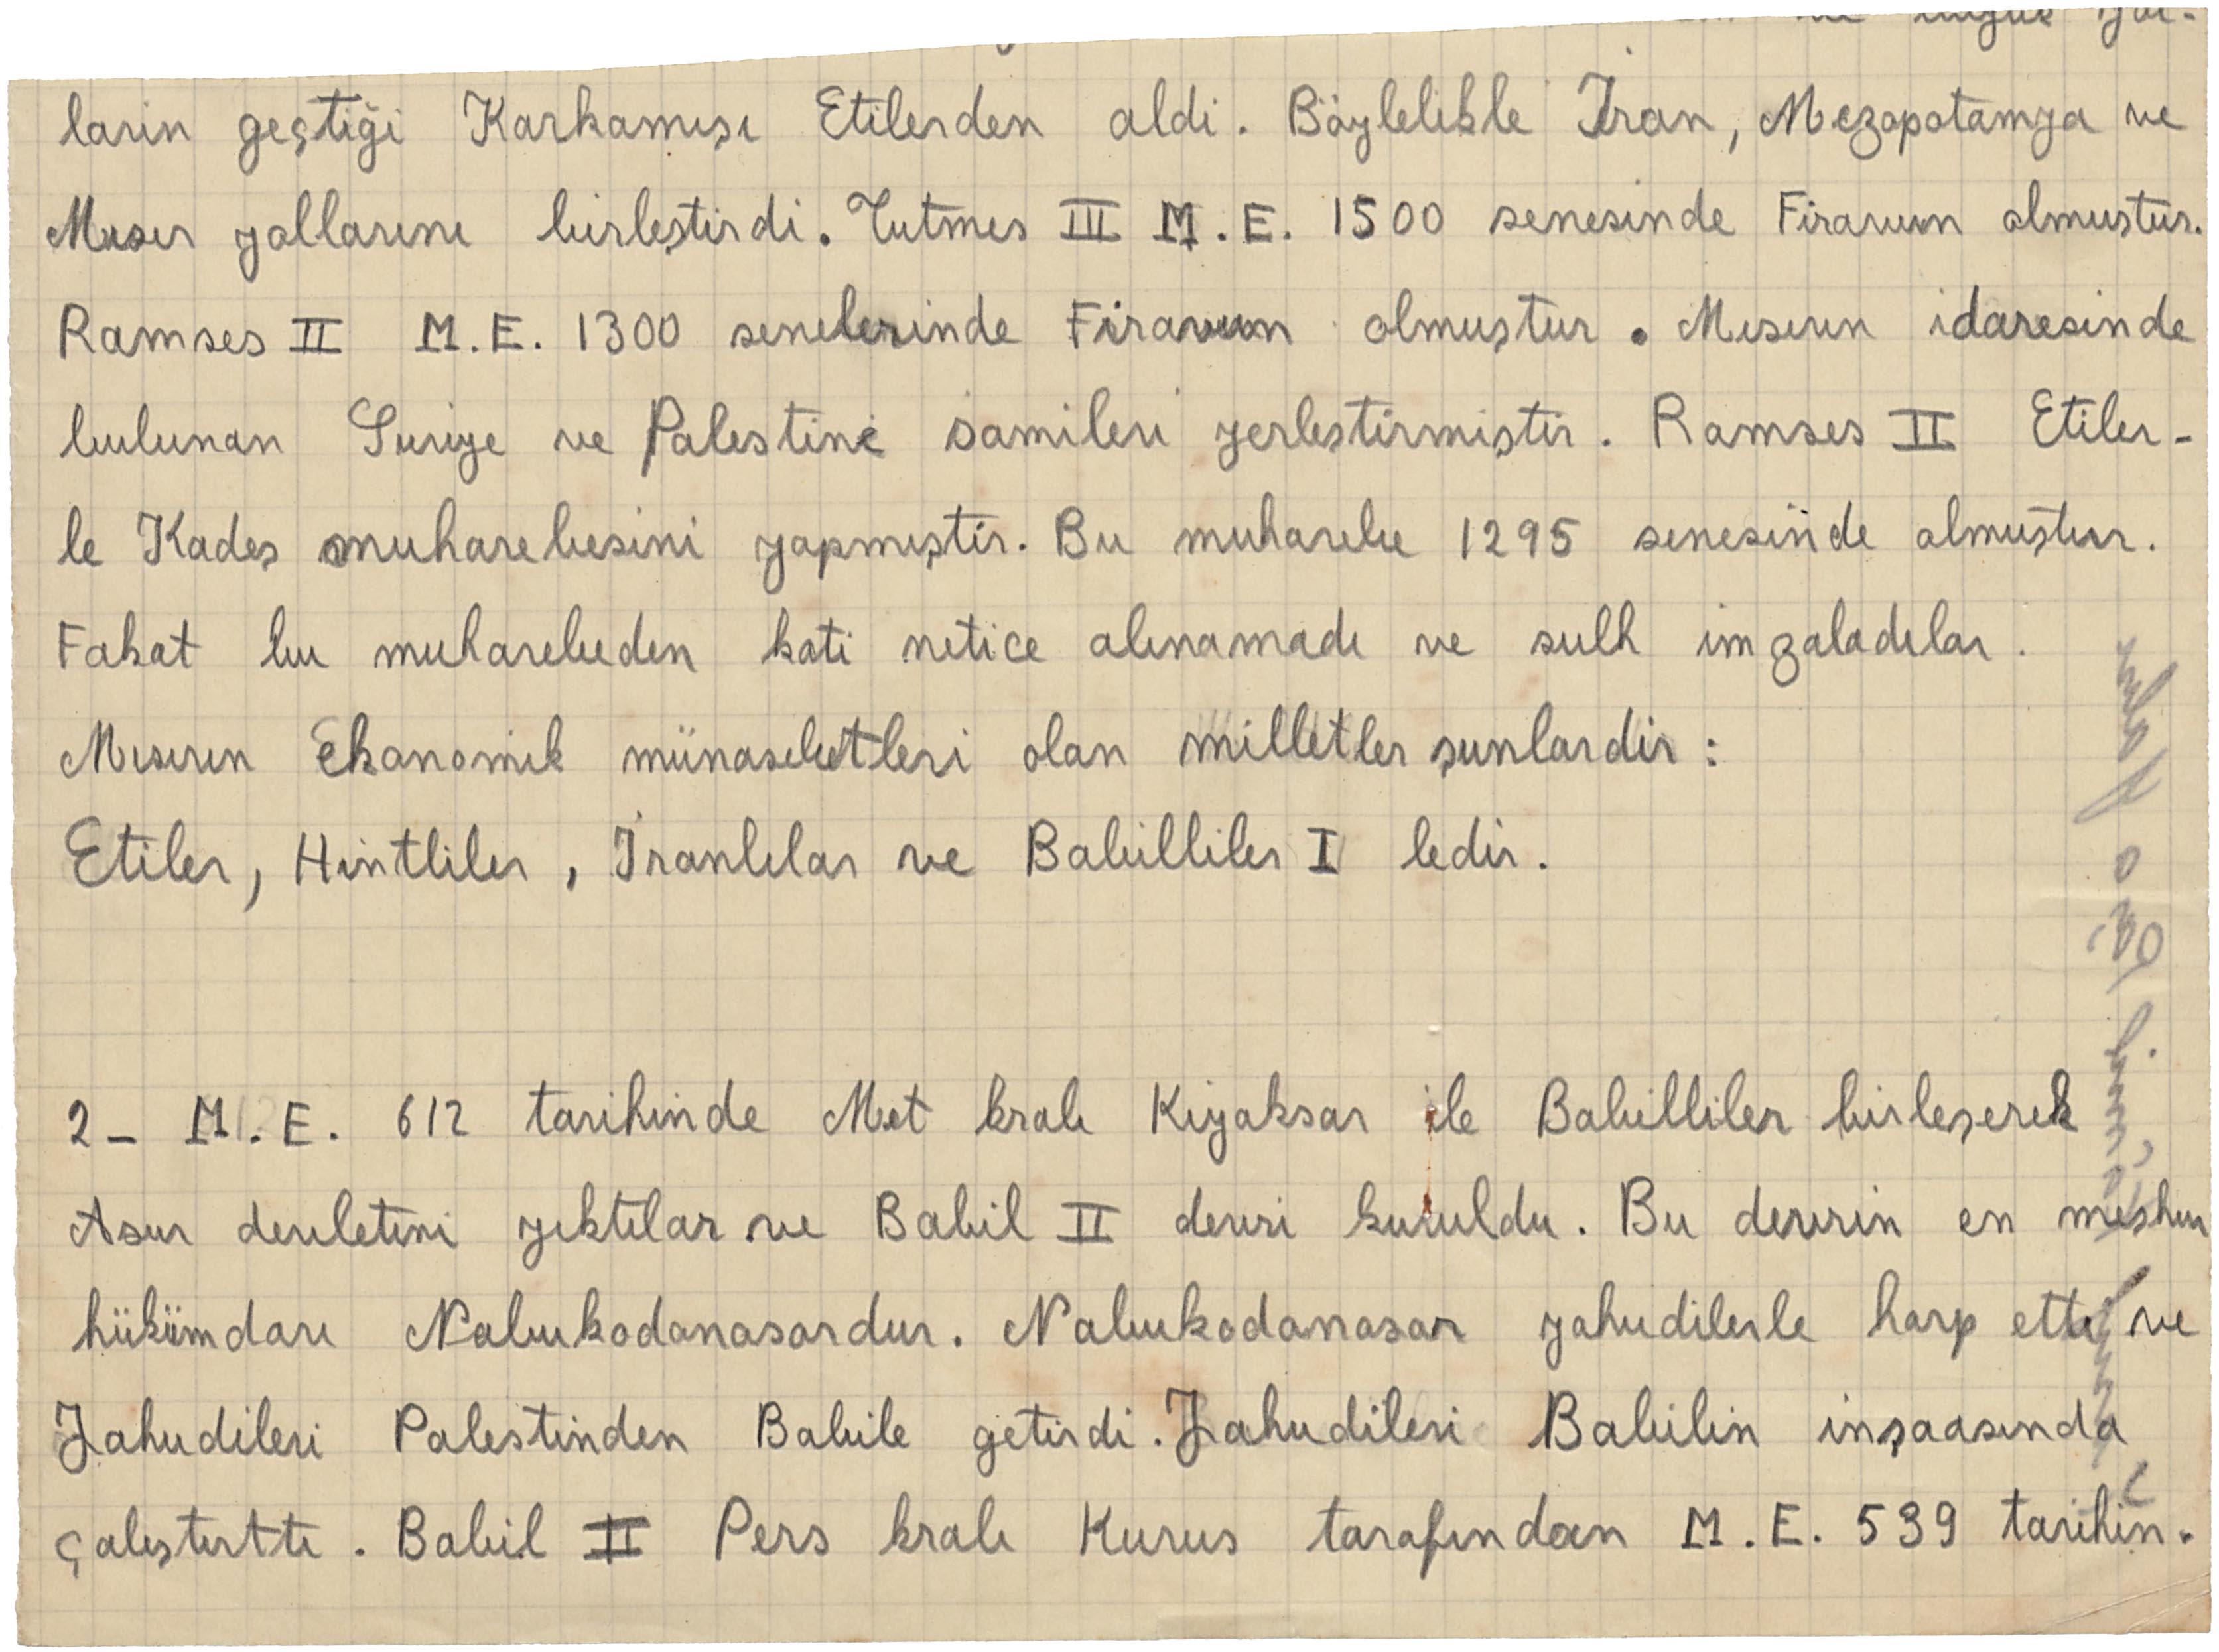 ların geçtiği Karkamışı Etilerden aldi. Böylelikle İran, Mezopotamya ve
Mısır yollarını birleştirdi. Tutmes III M.E. 1500 senesinde Firavun olmuştur.
Ramses II M.E. 1300 senelerinde Firavun olmuştur. Mısırın idaresinde
bulunan Suriye ve Palestine samileri yerleştirmiştir. Ramses II Etiler-
le Kadeş muharebesini yapmıştir. Bu muharebe 1295 senesinde olmuştur.
Fakat bu muharebeden kati netice alınamadı ve sulh imzaladılar.
Mısırın Ekonomik münasebetleri olan milletler şunlardir:
Etiler, Hintliler, İranlılar ve Babilliler I ledir.
2- M.E. 612 tarihinde Met kralı Kiyaksar ile Babilliler birleşerek
Asur devletini yıktılar ve Babil II devri kuruldu. Bu devrin en meşhur
hükümdarı Nabukodonasardur. Nabukodonasar yahudilerle harp etti ve
Yahudileri Palestinden Babile getirdi. Yahudileri Babilin inşaasında
çalıştırttı. Babil II Pers kralı Kurus tarafından M.E. 539 tarihin-